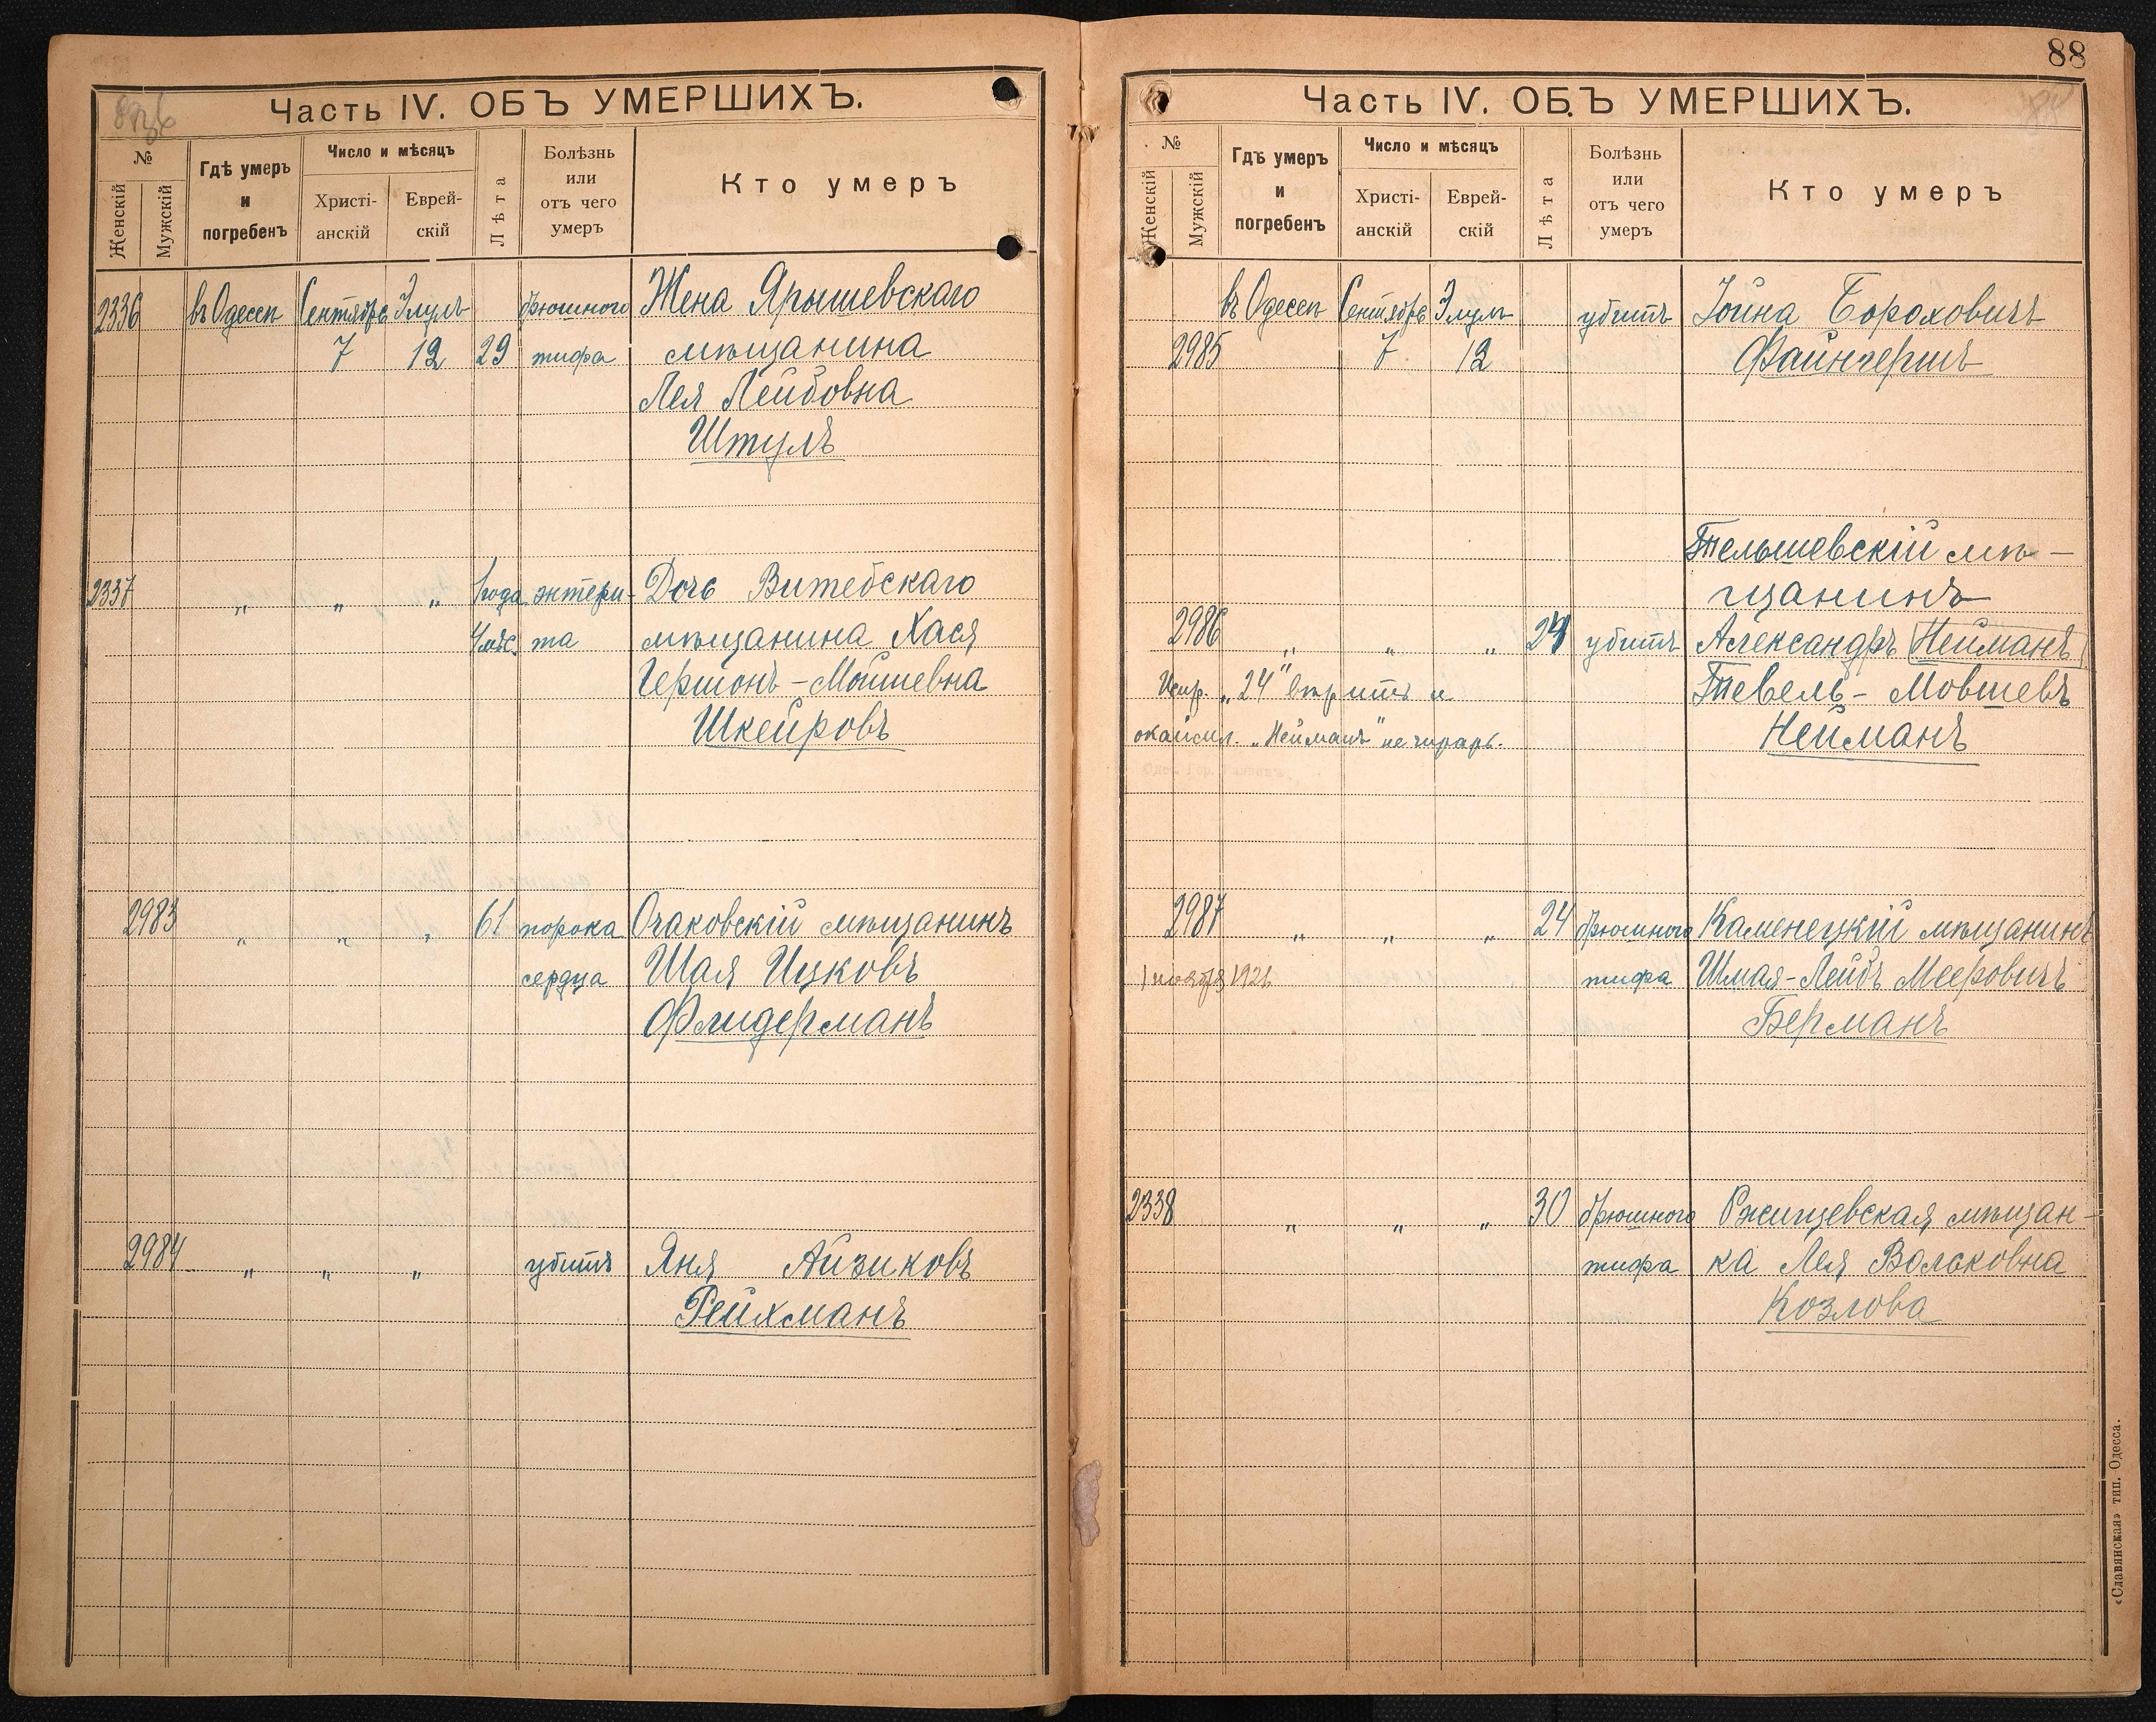 Часть IV. ОБЪ УМЕРШИХЪ.
№
Женскій
Мужскій
Гдѣ умеръ
и
погребенъ
Число и мѣсяцъ
Христі-
анскій
Еврей-
скій
Лѣта
Болѣзнь
или
отъ чего
умеръ
Кто умеръ
2336 въ Одессѣ Сентябрь Элулъ брюшного Жена Ярышевскаго
7 12 29 тифа мѣщанина
Лея Лейбовна
Штулъ
2337 „ „ „ 1 года энтери- Дочь Витебскаго
4 мѣс. та мѣщанина Хася
Гершонъ-Мойшевна
Шкейровъ
2983 „ „ „ 61 порока Очаковскій мѣщанинъ
сердца Шая Ицковъ
Флидерманъ
2984 „ „ „ убитъ Яня Айзиковъ
Рейхманъ
88
Часть IV. ОБЪ УМЕРШИХЪ.
№
Женскій
Мужскій
Гдѣ умеръ
и
погребенъ
Число и мѣсяцъ
Христі-
анскій
Еврей-
скій
Лѣта
Болѣзнь
или
отъ чего
умеръ
Кто умеръ
въ Одессѣ Сентябрь Элулъ убитъ Іойна Бороховичъ
2985 7 12 Файнгершъ
Тельшевскій мѣ-
щанинъ
2986 „ „ „ 24 убитъ Александръ Нейманъ
Испр. „24“ вѣрить и Тевель-Мовшевъ
окаймл. „Нейманъ“ не читать. Нейманъ
2987 „ „ „ 24 брюшного Каменецкій мѣщанинъ
тифа Шмая-Лейбъ Мееровичъ
Берманъ
2338 „ „ „ 30 брюшного Ржищевская мѣщан-
тифа ка Лея Вольковна
Козлова
«Славянская» тип. Одесса.